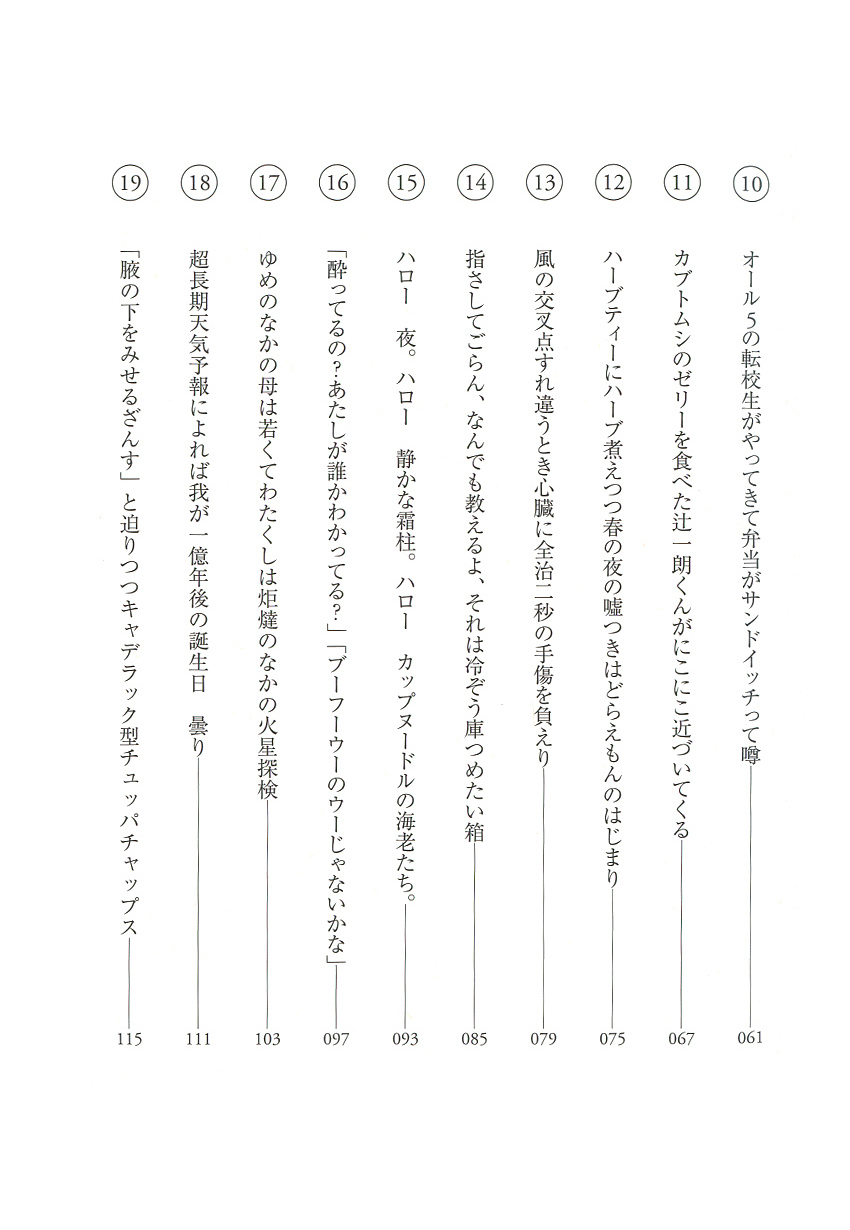 ⑩ オール5の転校生がやってきて弁当がサンドイッチって噂 061
⑪ カブトムシのゼリーを食べた辻一朗くんがにこにこ近づいてくる 067
⑫ ハーブティーにハーブ煮えつつ春の夜の嘘つきはどらえもんのはじまり 075
⑬ 風の交叉点すれ違うとき心臓に全治二秒の手傷を負えり 079
⑭ 指さしてごらん、なんでも教えるよ、それは冷ぞう庫つめたい箱 085
⑮ ハロー　夜。ハロー　静かな霜柱。ハロー　カップヌードルの海老たち。 093
⑯ 「酔ってるの?あたしが誰かわかってる?」「ブーフーウーのウーじゃないかな」 097
⑰ ゆめのなかの母は若くてわたくしは炬燵のなかの火星探検 103
⑱ 超長期天気予報によれば我が一億年後の誕生日　曇り 111
⑲ 「腋の下をみせるざんす」と迫りつつキャデラック型チュッパチャップス 115